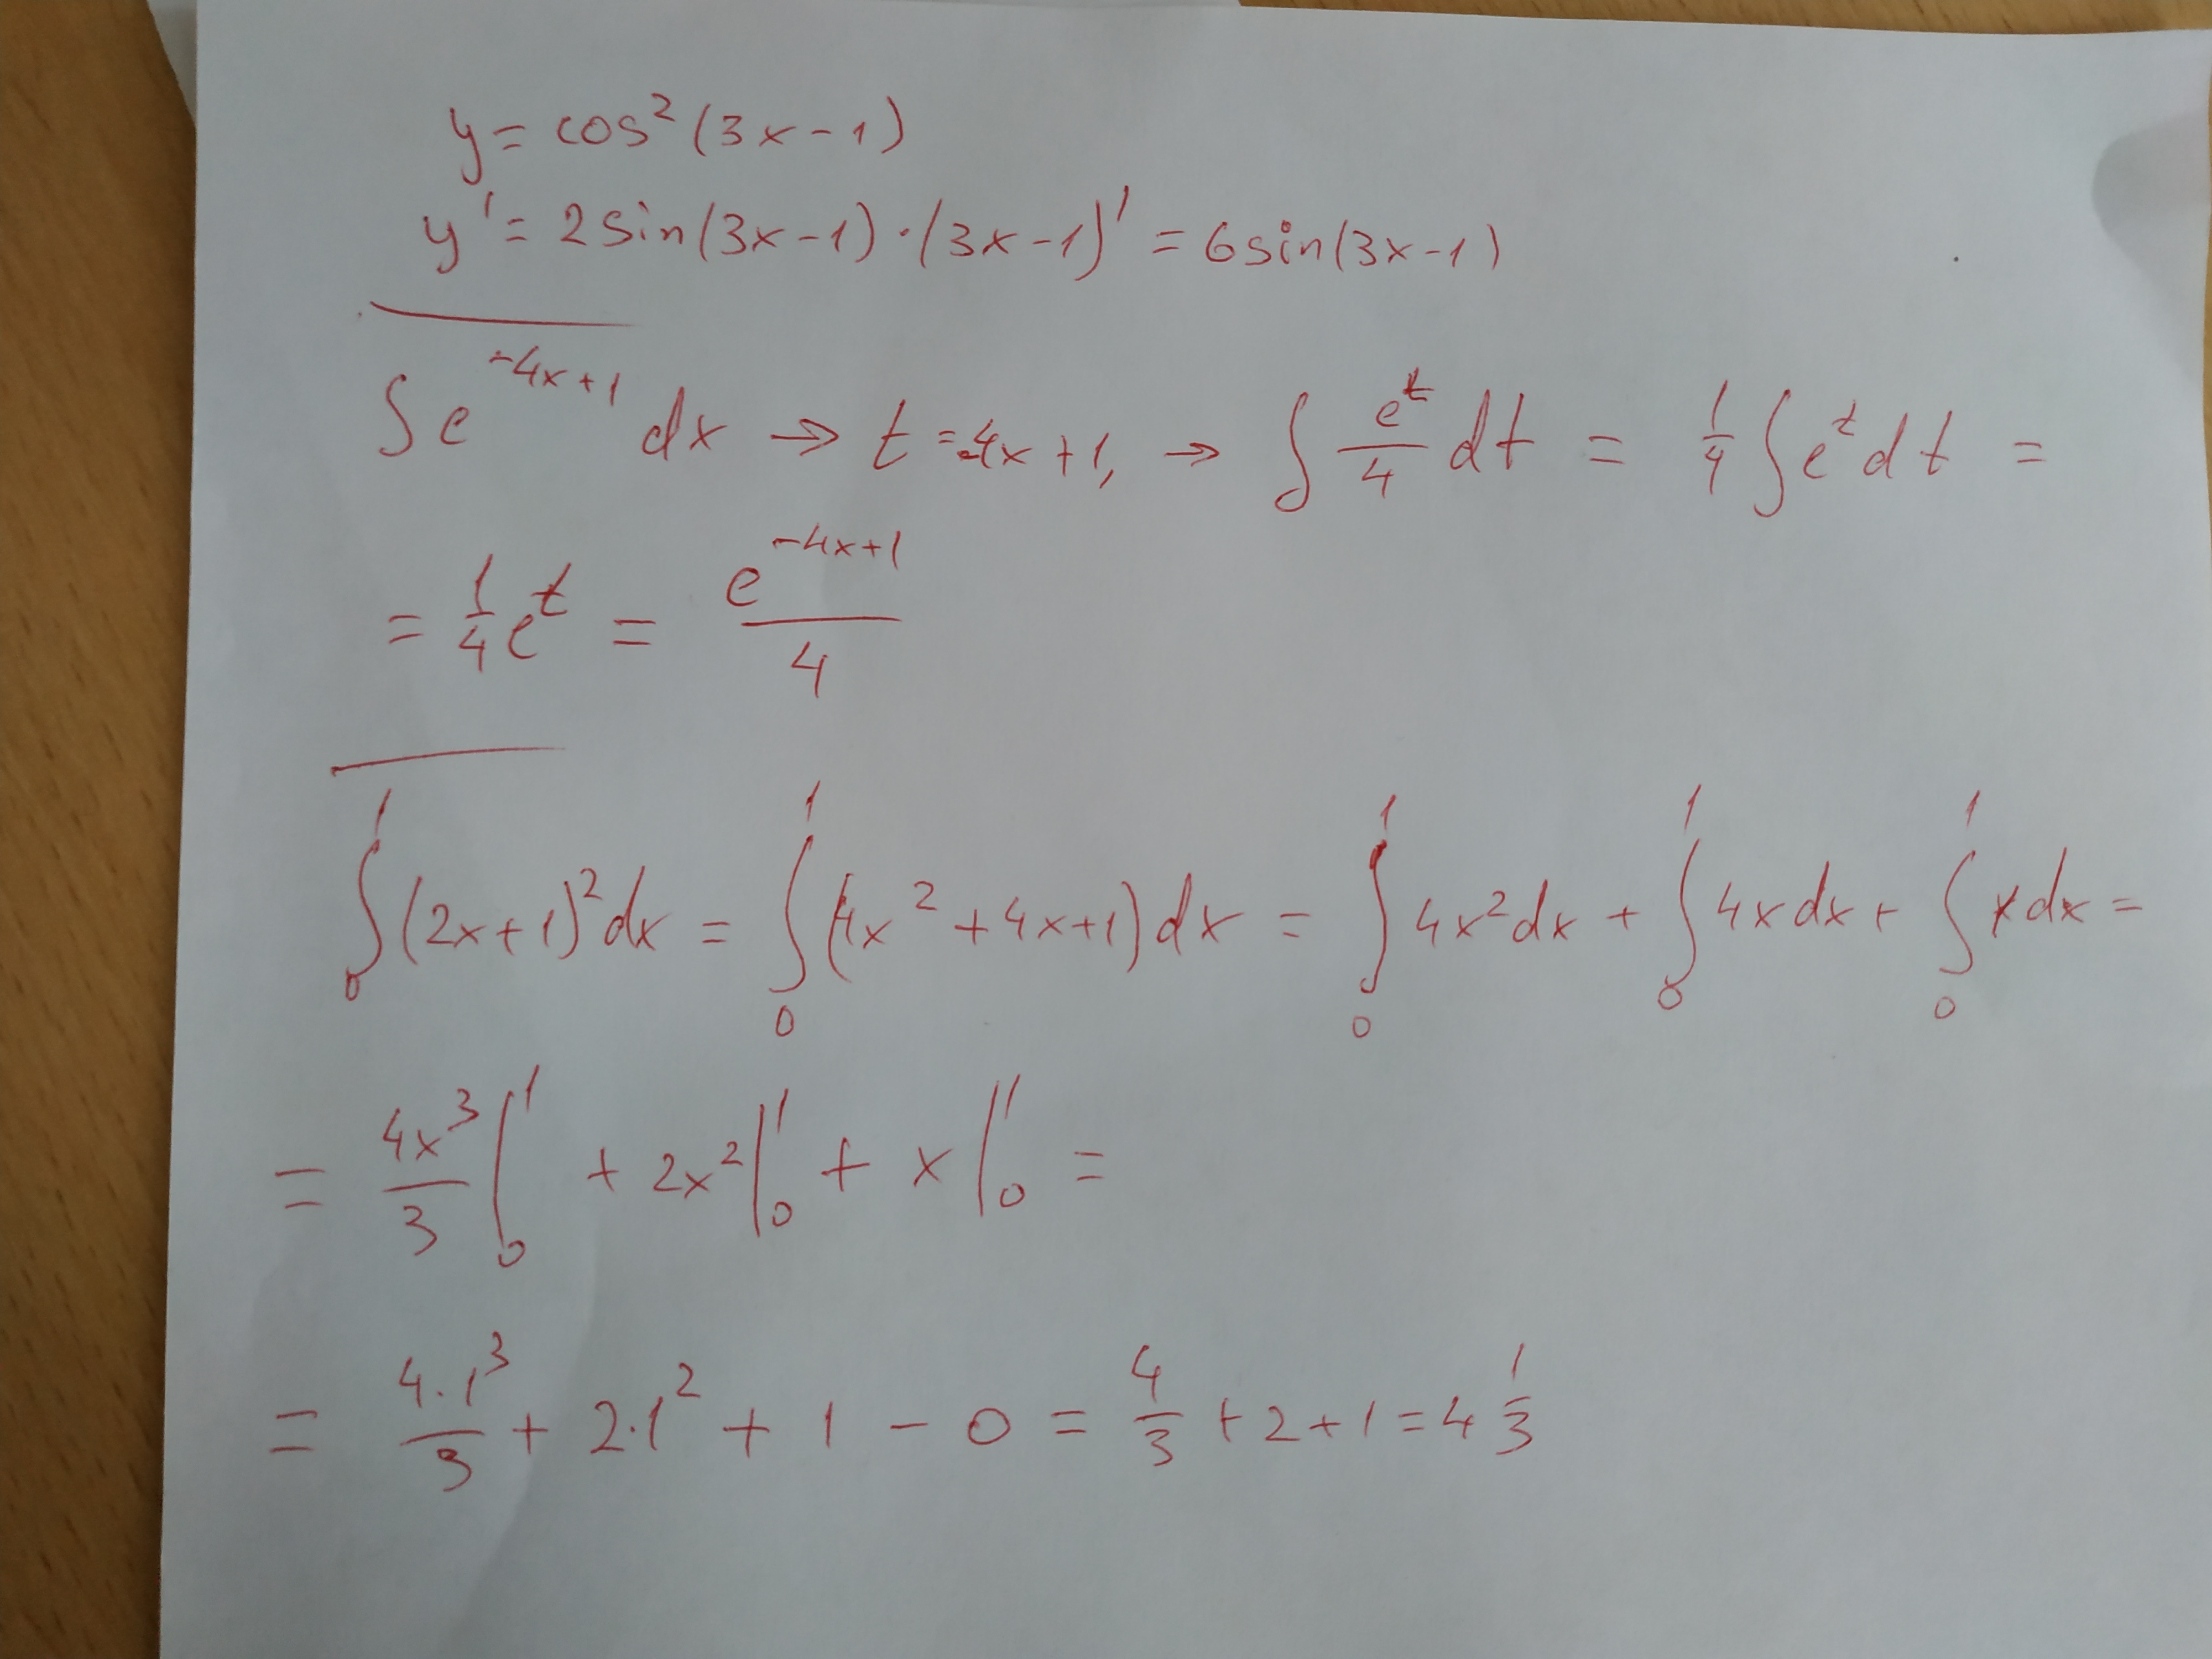 y = cos²(3x-1)
y' = 2sin(3x-1)·(3x-1)' = 6sin(3x-1)
∫e^(-4x+1) dx → t = -4x+1, → ∫ e^t/4 dt = 1/4 ∫e^t dt =
= 1/4 e^t = e^(-4x+1)/4
∫₀¹(2x+1)²dx = ∫₀¹(4x²+4x+1)dx = ∫₀¹4x²dx + ∫₀¹4xdx + ∫₀¹xdx =
= 4x³/3|₀¹ + 2x²|₀¹ + x|₀¹ =
= 4·1³/3 + 2·1² + 1 - 0 = 4/3 + 2 + 1 = 4 1/3